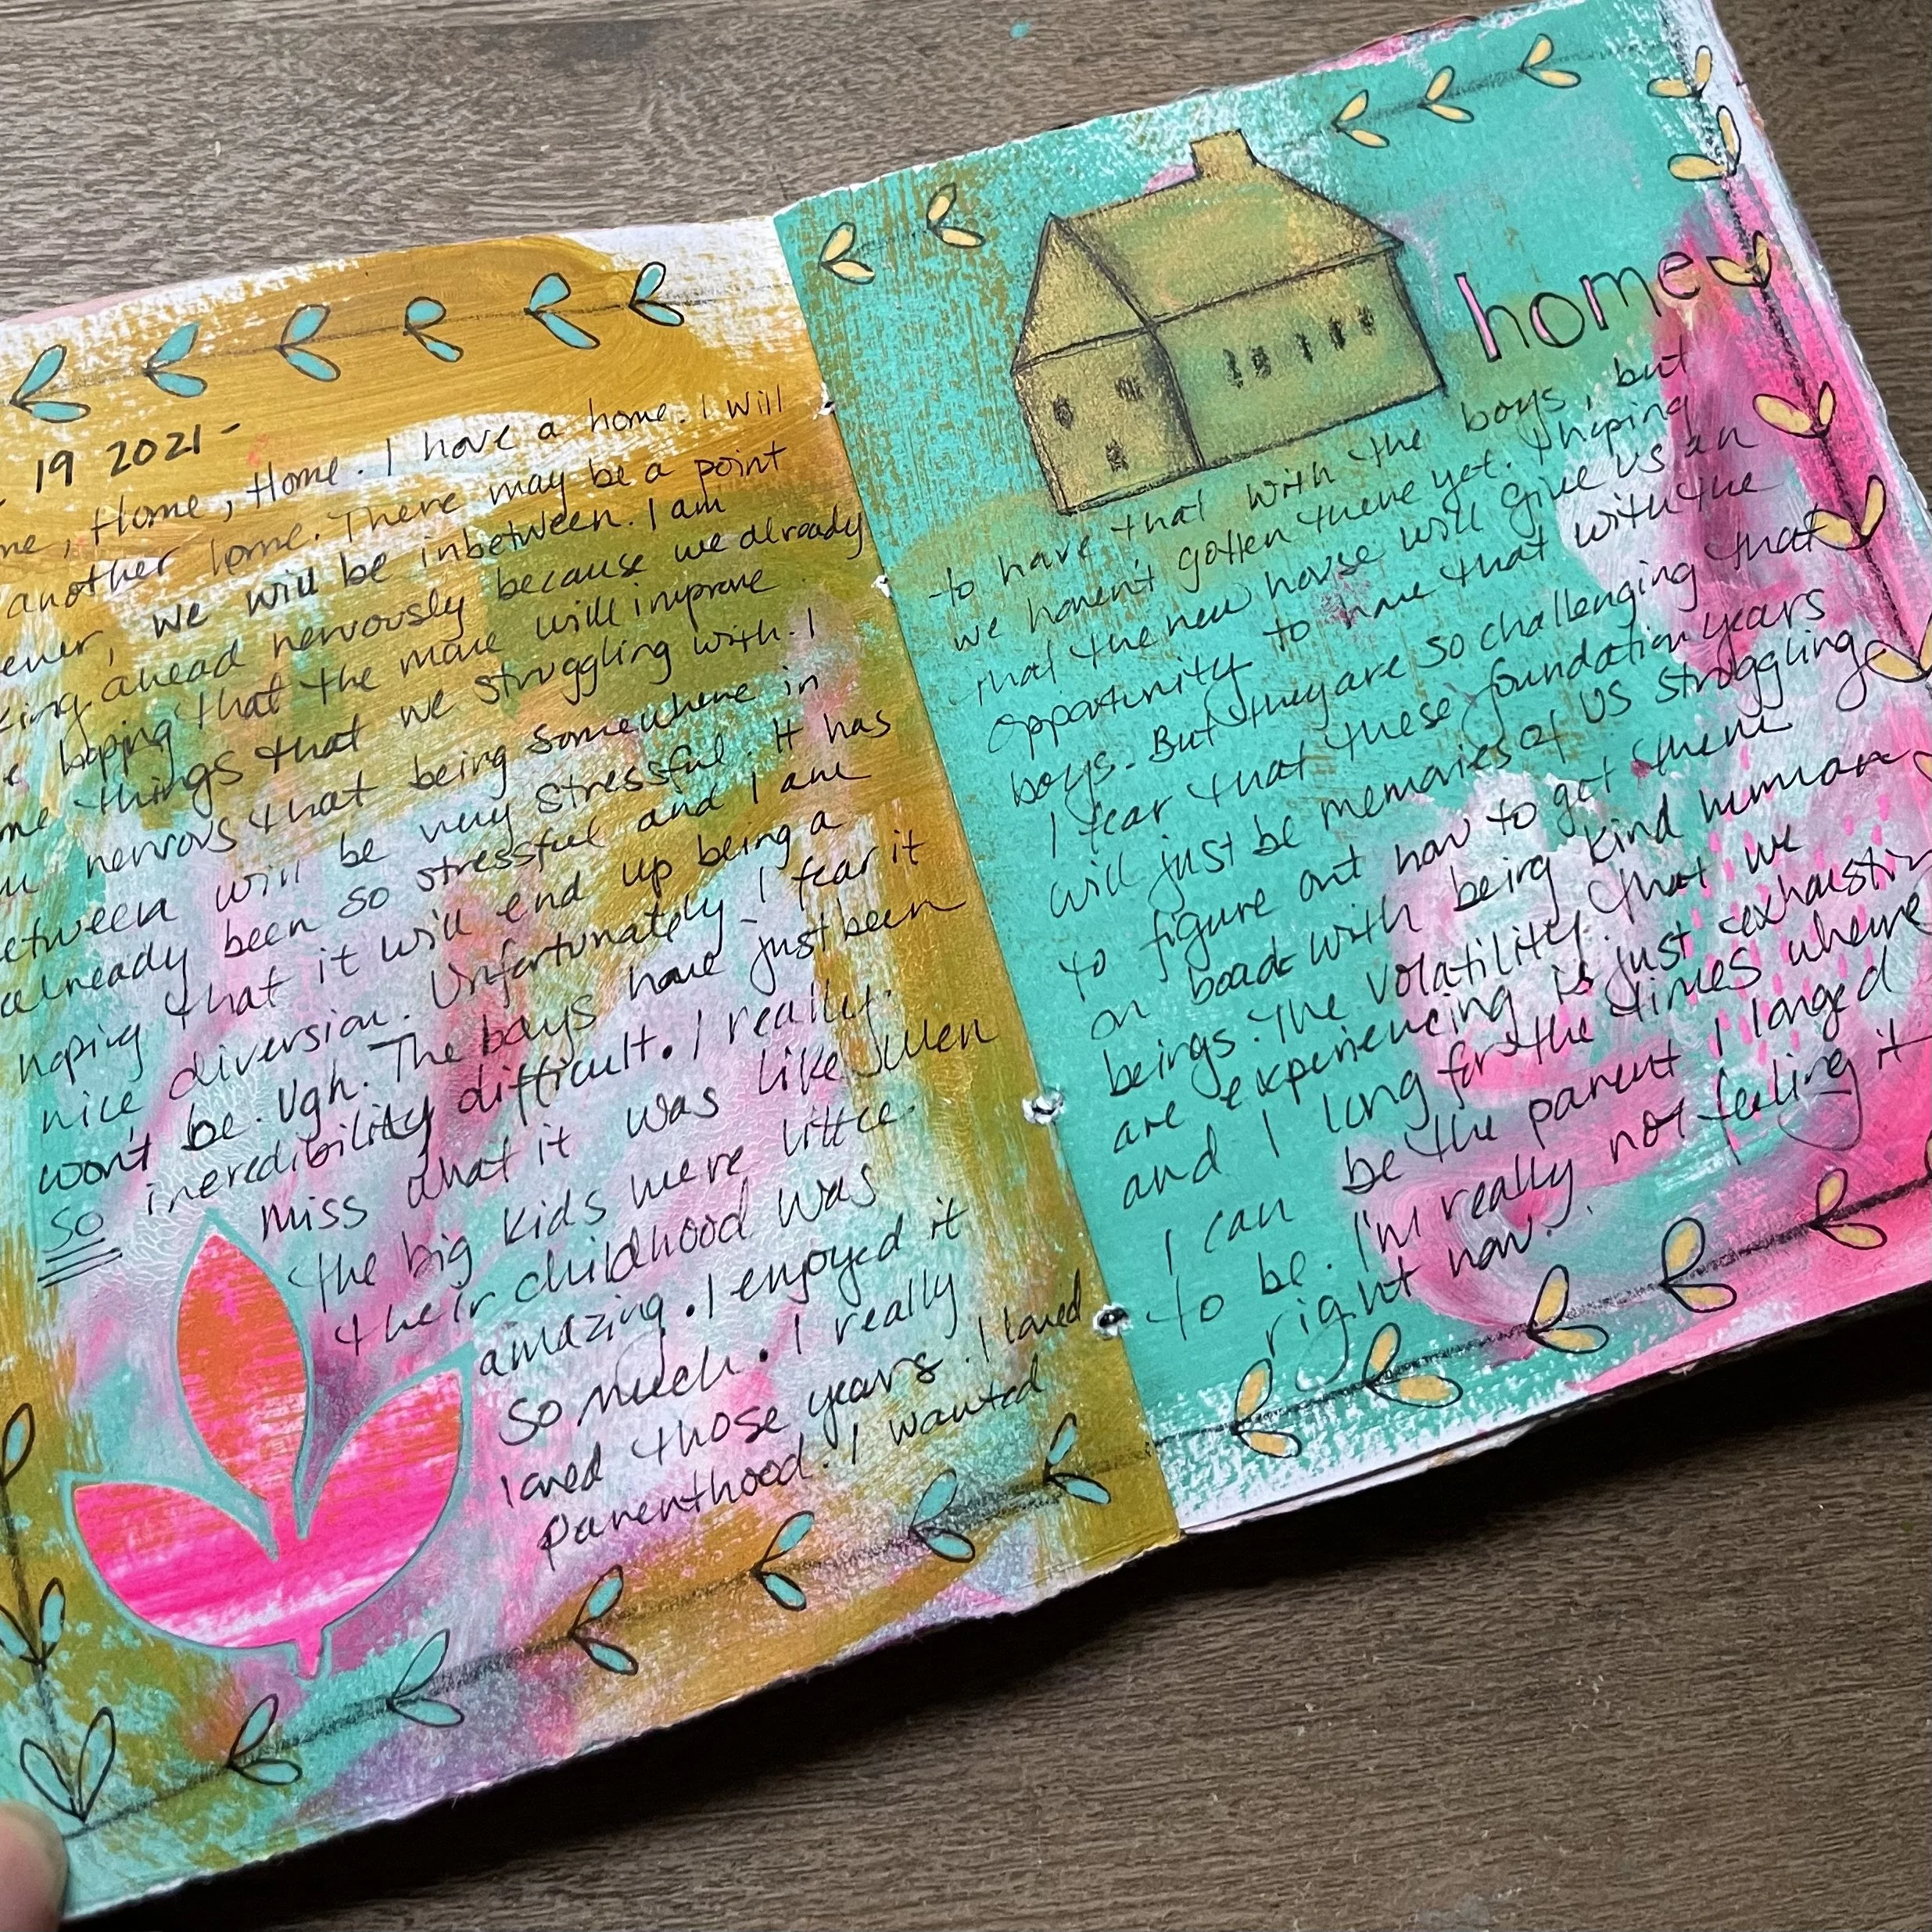 19 2021-
Home, Home. I have a home. I will
another home. There may be a point
we will be inbetween. I am
ahead nervously because we already
hoping that the move will improve
things that we struggling with. I
nervous that being somewhere in
will be very stressful. It has
already been so stressful and I am
hoping that it will end up being a
nice diversion. Unfortunately I fear it
won't be. Ugh. The boys have just been
SO incredibility difficult. I really
miss what it was like when
the big kids were little.
their childhood was
amazing. I enjoyed it
so much. I really
loved those years. I loved
parenthood. I wanted
home
to have that with the boys, but
we haven't gotten there yet. I hoping
that the new house will give us an
opportunity to have that with the
boys. But they are so challenging that
I fear that these foundation years
will just be memories of us struggling
to figure out how to get them
on board with being kind human
beings. The volatility that we
are experiencing is just
and I long for the times where
I can be the parent I longed
to be. I'm really not feeling it
right now.